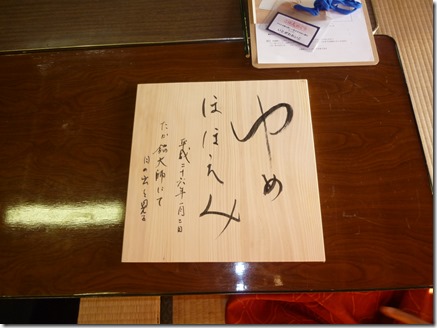 ゆめ
ほほえみ
平成二十六年一月二日
たか
大師にて
日の出を見る